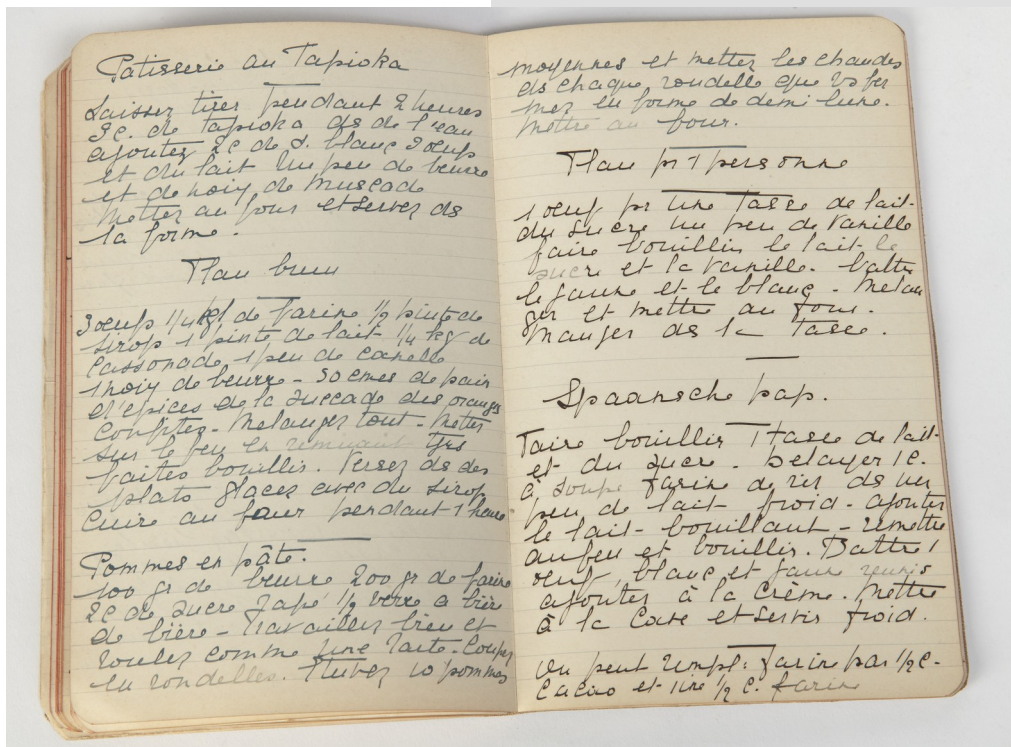 Patisserie au Tapioka
Laisser tirer pendant 2 heures
3 c. de Tapioka ds de l'eau
ajoutez 2c de s. blanc 3 oeufs
et du lait un peu de beurre
et de noix de Muscade
Mettez au four et servez ds
la forme.
Flan brun
3 oeufs 1/4 kg de farine 1/2 pinte de
sirop 1 pinte de lait 1/4 kg de
Cassonade 1 peu de canelle
1 noix de beurre - de pain
d'épices de la succade des oranges
confites - Melanger tout - Mettez
sur le feu en remuant
faites bouillir. Versez ds des
plats glacez avec du sirop
Cuire au four pendant 1 heure
Pommes en pâte.
100 gr de beurre 200 gr de farine
2c de sucre rapé 1/2 verre a bière
de bière - Travaillez bien et
roulez comme une tarte - Coupez
en rondelles. 10 pommes
moyennes et mettez les chaudes
ds chaque rondelle que vs fer
mez en forme de demi lune.
Mettre au four.
Flan pr 1 personne
1 oeuf pr une Tasse de lait -
du sucre un peu de Vanille
faire bouillir le lait - le
sucre et la vanille. battre
le jaune et le blanc - Melan
ger et mettre au four.
Manger ds la Tasse.
Spaansche pap.
Faire bouillir 1 tasse de lait -
et du sucre. Delayer 1 c.
à soupe farine de riz ds un
peu de lait - froid - ajouter
le lait - bouillant - remettre
au feu et bouillir. Battre 1
oeuf, blanc et jaune reunis
ajoutez à la crème. Mettre
à la Cave et servir froid.
On peut rempl: farine par 1/2 c.
Cacao et 1/2 c. farine